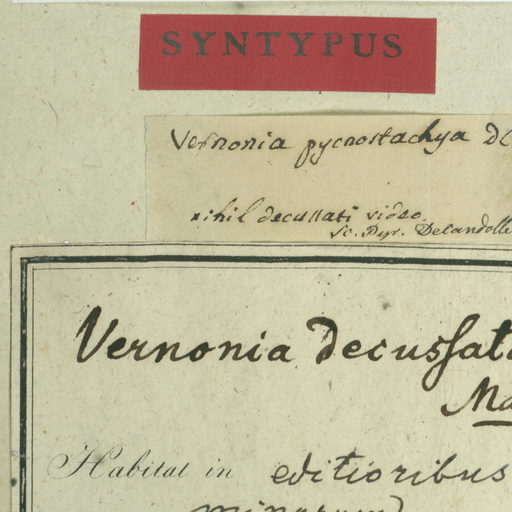 SYNTYPUS
Vernonia pycnostachya DC
nihil decussati video.
sc. Pyr. Decandolle
Vernonia decussata
Ma
Habitat in editioribus
minarum